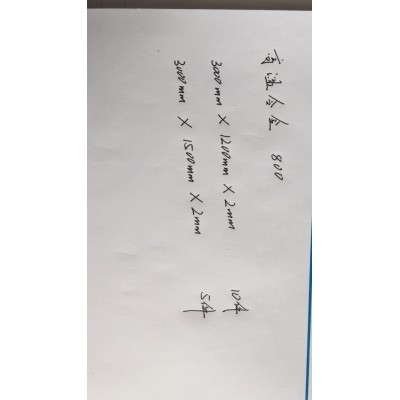 高温合金 800
3000mm × 1200mm × 2mm 10件
3000mm × 1500mm × 2mm 5件